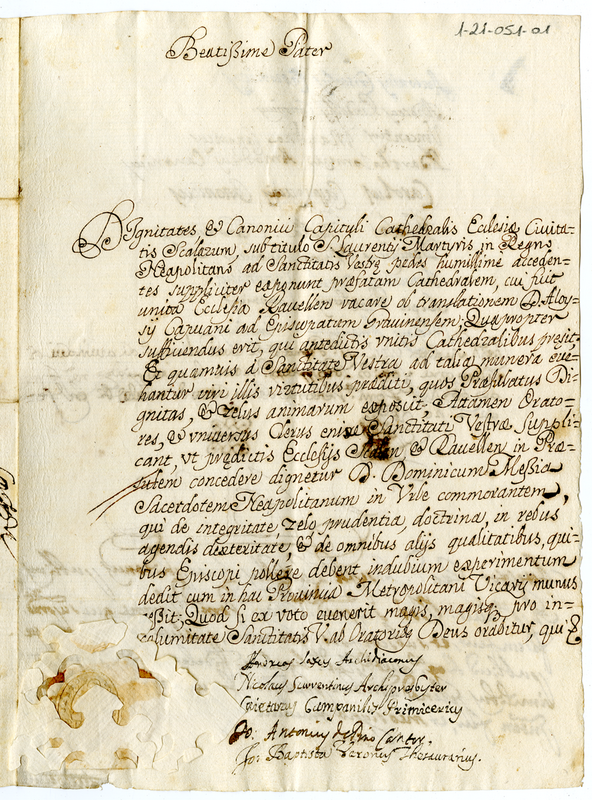 1-21-051-01
Beatißime Pater
Dignitates, & Canonici Capituli Cathedralis Eclesiæ Civita-
tis Scalarum, sub titulo S. Laurentij Martyris in Regno
Neapolitano ad Sanctitatis Vestræ pedes humillime acceden-
tes suppliciter exponunt præfatam Cathedralem, cui fuit
unita Ecclesia Ravellen vacare ob translationem D. Aloy-
sij Capuani ad Episcopatum Gravinensem; Quapropter
sufficiendus erit, qui antedictis unitis Cathedralibus presit.
Et quamuis a Sanctitate Vestra ad talia munera eve-
hantur viri illis virtutibus præditi, quos Præsulatus Di-
gnitas, & zelus animarum exposcit, Attamen Orato-
res, & vniversus Clerus enixe Sanctitati Vestræ suppli-
cant, vt prædictis Ecclesijs Scalen & Ravellen in Præ-
sulem concedere dignetur D. Dominicum Messia
Sacerdotem Neapolitanum in Vrbe commorantem,
qui de integritate, zelo prudentia, doctrina, in rebus
agendis dexteritate, & de omnibus alijs qualitatibus, qui-
bus Episcopi pollere debent indubium experimentum
dedit cum in hac Provincia Metropolitani Vicarij munus
geßit; Quod si ex voto evenerit magis, magisq; pro in-
columitate Sanctitatis V. ab Oratoribus Deus oraditur, qui &
Andreas Archidiaconus
Nicolaus Surrentinus Archipresbyter
Campanilis Primicerius
Jo: Antonius Cantor
Jo: Baptista Thesaurarius.